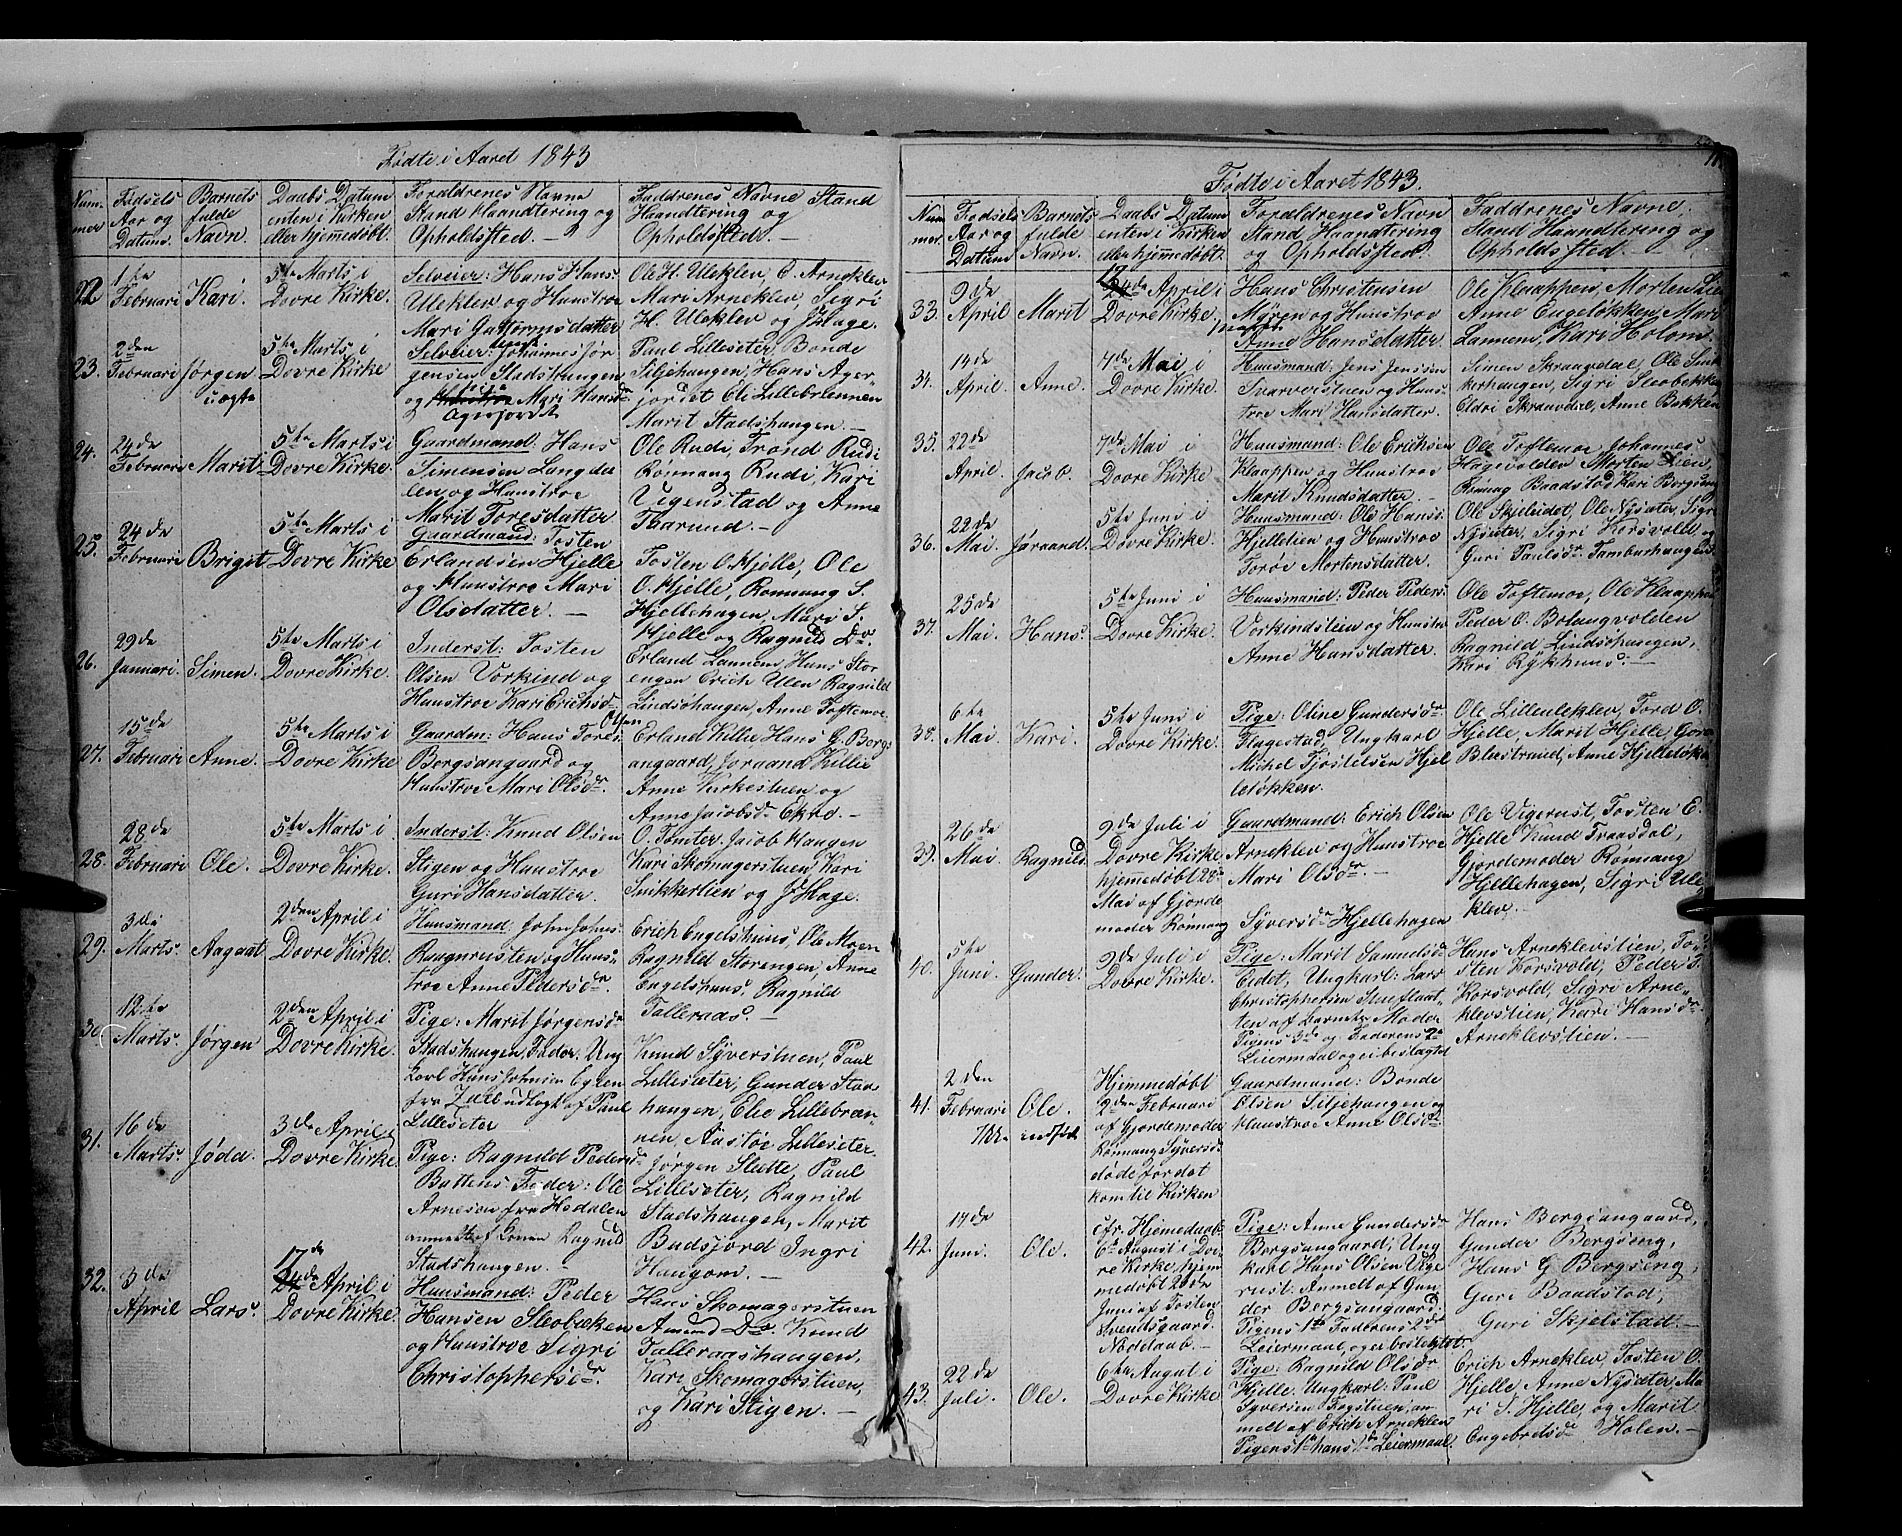 Fødte i Aaret 1843
Num-
mer
Fødsels
Aar og
Datum.
Barnets
fulde
Navn.
Daabs Datum
enten i Kirken
eller hjemmedøbt
Forældrenes Navne
Stand Haandtering og
Opholdssted. —
Faddrenes Navne Stand
Haandtering og
Opholdssted. —
22
1ste
Februari
Kari.
5te Marts i
Dovre Kirke.
Selveier: Hans Hans:
Uleklev og Hustroe
Mari Guttormsdatter
Ole H. Uleklev, O. Arneklev
Mari Arneklev, Sigri
H. Uleklev og J Hage.
23.
2den
Februari
Jørgen
uægte
5te Marts i
Dovre Kirke
Selveier: Johannes Jør
gensen Stadshaugen
og Pige Mari Hansdr
Agerjordet
Paul Lilleseter, Bonde
Siljehaugen, Hans Ager-
jordet Eli Lillebrennen
Marit Stadshaugen. —
24.
24de
Februari
Marit
5te Marts i
Dovre Kirke.
Gaardmand: Hans
Simensen Langda
len og Hustroe
Marit Toresdatter
Ole Rudi Trond Rudi
Rønnaug Rudi, Kari
Vigenstad og Anne
Taarund. —
25.
24de
Februari
Briget
5te Marts i
Dovre Kirke
Gaardmand: Tosten
Erlandsen Hjelle
og Hustroe Mari
Olsdatter. —
Tosten O. Hjelle, Ole
O. Hjelle, Rønnaug S.
Hjellehagen, Mari S.
Hjelle og Ragnild Do
26.
29de
Januari.
Simen.
5te Marts i
Dovre Kirke.
Inderst: Tosten
Olsen Vorkind og
Hustroe Kari Erichsdr
Erland Lannem, Hans Stor
engen Erich Ulen Ragnild
Lindsøhaugen, Anne Toftemoe.
27.
15de
Februari
Anne.
5te Marts i
Dovre Kirke
Gaardm: Hans Tores:
Olsen
Borgsangaard og
Hustroe Mari Olsdr.
Erland Killie Hans G. Borgs
angaard, Joraand Killie
Anne Kirkestuen og
Anne Jacobsdr Ekre. —
28.
28de
Februari
Ole.
5te Marts i
Dovre Kirke.
Inderst: Knud Olsen
Stigen og Hustroe
Guri Hansdatter.
O. Tomter. Jacob Haugen
Kari Skomagerstuen Kari
Snikkerlien og J Hage.
29.
3de
Marts
Aagaat
2den April i
Dovre Kirke.
Huusmand: John Johns:
Raugnreisten og Hus-
troe Anne Pedersdr.
Erich Engelshuus, Ole Moen
Ragnild Storengen, Anne
Engelshuus, Ragnild
Talleraas. —
30
12te
Marts
Jørgen
2den April i
Dovre Kirke.
Pige: Marit Jørgensdr
Stadshaugen, Fader: Ung
karl Hans Johnsen Egnen
fra udlagt af Paul
Lilleseter
Knud Syverstuen, Paul
Lilleseter, Gunder Stas
haugen, Elie Lillebræn-
nen, Aastøe Lilleseter.
31.
16de
Marts
Jødd.
3de April i
Dovre Kirke.
Pige: Ragnild Pedersdr
Butten Fader: Ole
Arnesen fra Hedalen
anmeldt af Konen Ragnild
Stadshaugen. —
Jørgen Slette, Paul
Lilleseter, Ragnild
Stadshaugen, Marit
Budsjord Ingri
Haugom. —
32.
3de
April
Lars.
17de
24de April i
Dovre Kirke.
Huusmand: Peder
Hansen Sleobekken
og Hustroe Sigri
Christophersdr.
Hans Skomagerstuen
Amund Do. Knud
Talleraashaugen,
Kari Skomagerstuen,
og Kari Stigen. —
Fødte i Aaret 1843.
Num
mer.
Fødsels
Aar og
Datum
Barnets
fulde
Navn.
Daabs Datum
enten i Kirken
eller hjemmedøbt
Forældrenes Navn
Stand Haandtering
og Opholdssted.
Faddrenes Navne.
Stand Haandtering og
Opholdssted. —
33.
9de
April
Marit
17
24de April i
Dovre Kirke.
Hans Christensen
Myren og Hustroe
Anne Hansdatter.
Ole Klaappen, Morten Lien
Anne Engeløkken, Mari
Lannem, Kari Holom.
34.
14de
April.
Anne.
7de Mai i
Dovre Kirke.
Huusmand: Jens Jenssen
Svarverstuen og Hus-
troe Mari Hansdatter.
Simen Skraagdal, Ole Snik
kerhaugen, Sigri Sleobekken
Eldri Skraavdal, Anne Bakken
35.
22de
April.
Jacob.
7de Mai i
Dovre Kirke
Huusmand: Ole Eriksen
Klaappen og Hustroe
Marit Knudsdatter. —
Ole Toftemoe Johannes
Hagevolden Morten Lien,
Rønnaug Baadstad Kari Borgsøng
36.
22de
Mai.
Jøraand.
5te Juni i
Dovre Kirke.
Huusmand: Ole Hans:
Hjellelien og Hustroe
Torøe Mortensdatter.
Ole Skjelidet, Ole Nyseter, Sigri
Nyseter, Sigri Korsvold og
Guri Paulsdr. Tamburhaugen
37.
25de
Mai.
Hans.
5te Juni i
Dovre Kirke.
Huusmand: Peder Peders:
Vorkindslien og Hustroe
Anne Hansdatter.
Ole Toftemoe, Ole Klaappen
Peder O. Bolangvolden
Ragnild Lindsøhaugen,
Kari Rykhuus. —
38.
6te
Mai.
Kari.
5te Juni i
Dovre Kirke.
Pige: Oline Gundersdr
Flagestad, Ungkarl
Michel Tjøstelsen Hjel
leløkken.
Ole Lilleuleklev, Tord O.
Hjelle, Marit Hjelle, Goro
Blæstrand, Anne Hjelleløkken
39.
26de
Mai.
Ragnild.
2de Juli i
Dovre Kirke.
hjemmedøbt 28de
Mai af Gjorde
moder Rønnaug
Syversdr Hjellehagen
Gaardmand: Erich Olsen
Arneklev og Hustroe
Mari Olsdr. —
Ole Vigerust, Tosten E.
Hjelle Knud Traasdal,
Gjordemoder Rønnaug
Hjellehagen, Sigri Ule-
klev.
40.
5te
Juni.
Gunder.
2de Juli i
Dovre Kirke.
Pige: Marit Samuelsdr
Eidet, Ungkarl: Lars
Christophersen Stueflaat-
ten af Barnets Moder
Pigens 3de og Faderens 2de
Leiermaal og ei beslægtet
Hans Arneklevslien, To-
sten Korsvold, Peder T.
Korsvold, Sigri Arne-
klevslien, Kari Hansdr
Arneklevslien. —
41.
2den
Februari
Ole.
Hjemmedøbt
2den Februari
af Gjordemoder
Rønnaug Syversdr
døde før det
kom til Kirken
Gaardmand: Bonde
Olsen Siljehaugen og
Hustroe Anne Olsdr.
42.
14de
Juni.
Ole.
cfr. Hjemedaab
6te August i Dov-
re Kirke, hjem
medøbt 20de
Juni af Tosten
Svendsgaard.
Nøddaab. —
Pige: Anne Gundersdr
Borgsangaard, Ung
karl Hans Olsen Vige
rust. Anmelt af Gun
der Borgsangaard.
Pigens 1ste Faderens 2de
Leiermaal, og er beslægtet.
Hans Borgsangaard,
Gunder Bergseng,
Hans G Bergseng,
Guri Baadstad,
Guri Skjelstad. —
43.
22de
Juli.
Ole.
6te August i
Dovre Kirke
Pige: Ragnild Olsdr
Hjelle. Ungkarl: Paul
Syversen Fogstuen, an
melt af Erich Arneklev
Pigens 1ste hans 1ste Leiermaal.
Erich Arneklev, Tosten O.
Hjelle Anne Nyseter, Ma
ri S. Hjelle, og Marit
Engebretsdr Holen. —